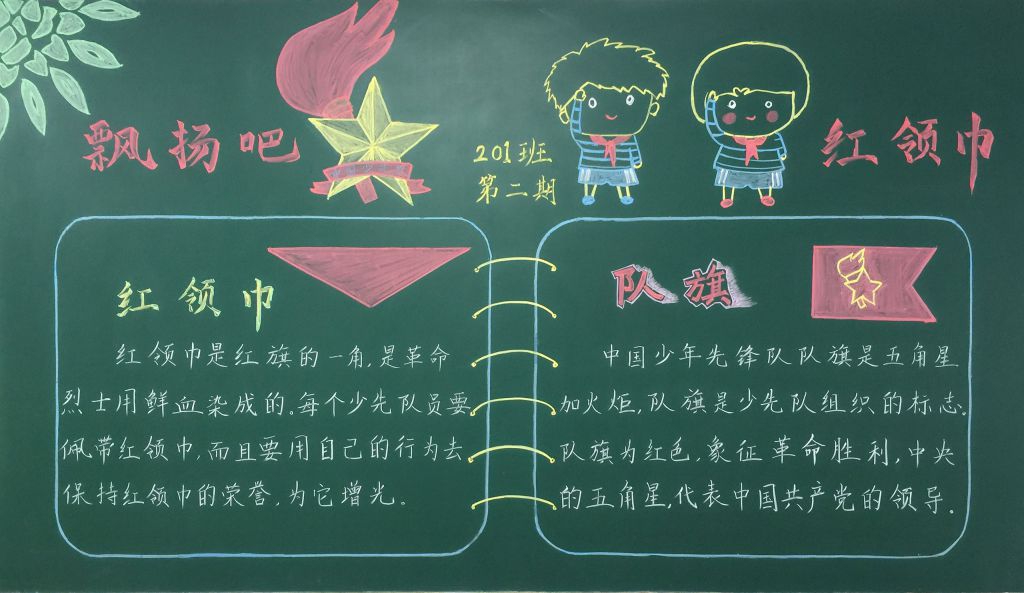 飘扬吧
201班
第二期
红领巾
红领巾
红领巾是红旗的一角,是革命
烈士用鲜血染成的。每个少先队员要
佩带红领巾,而且要用自己的行为去
保持红领巾的荣誉,为它增光。
队旗
中国少年先锋队队旗是五角星
加火炬,队旗是少先队组织的标志。
队旗为红色,象征革命胜利,中央
的五角星,代表中国共产党的领导.